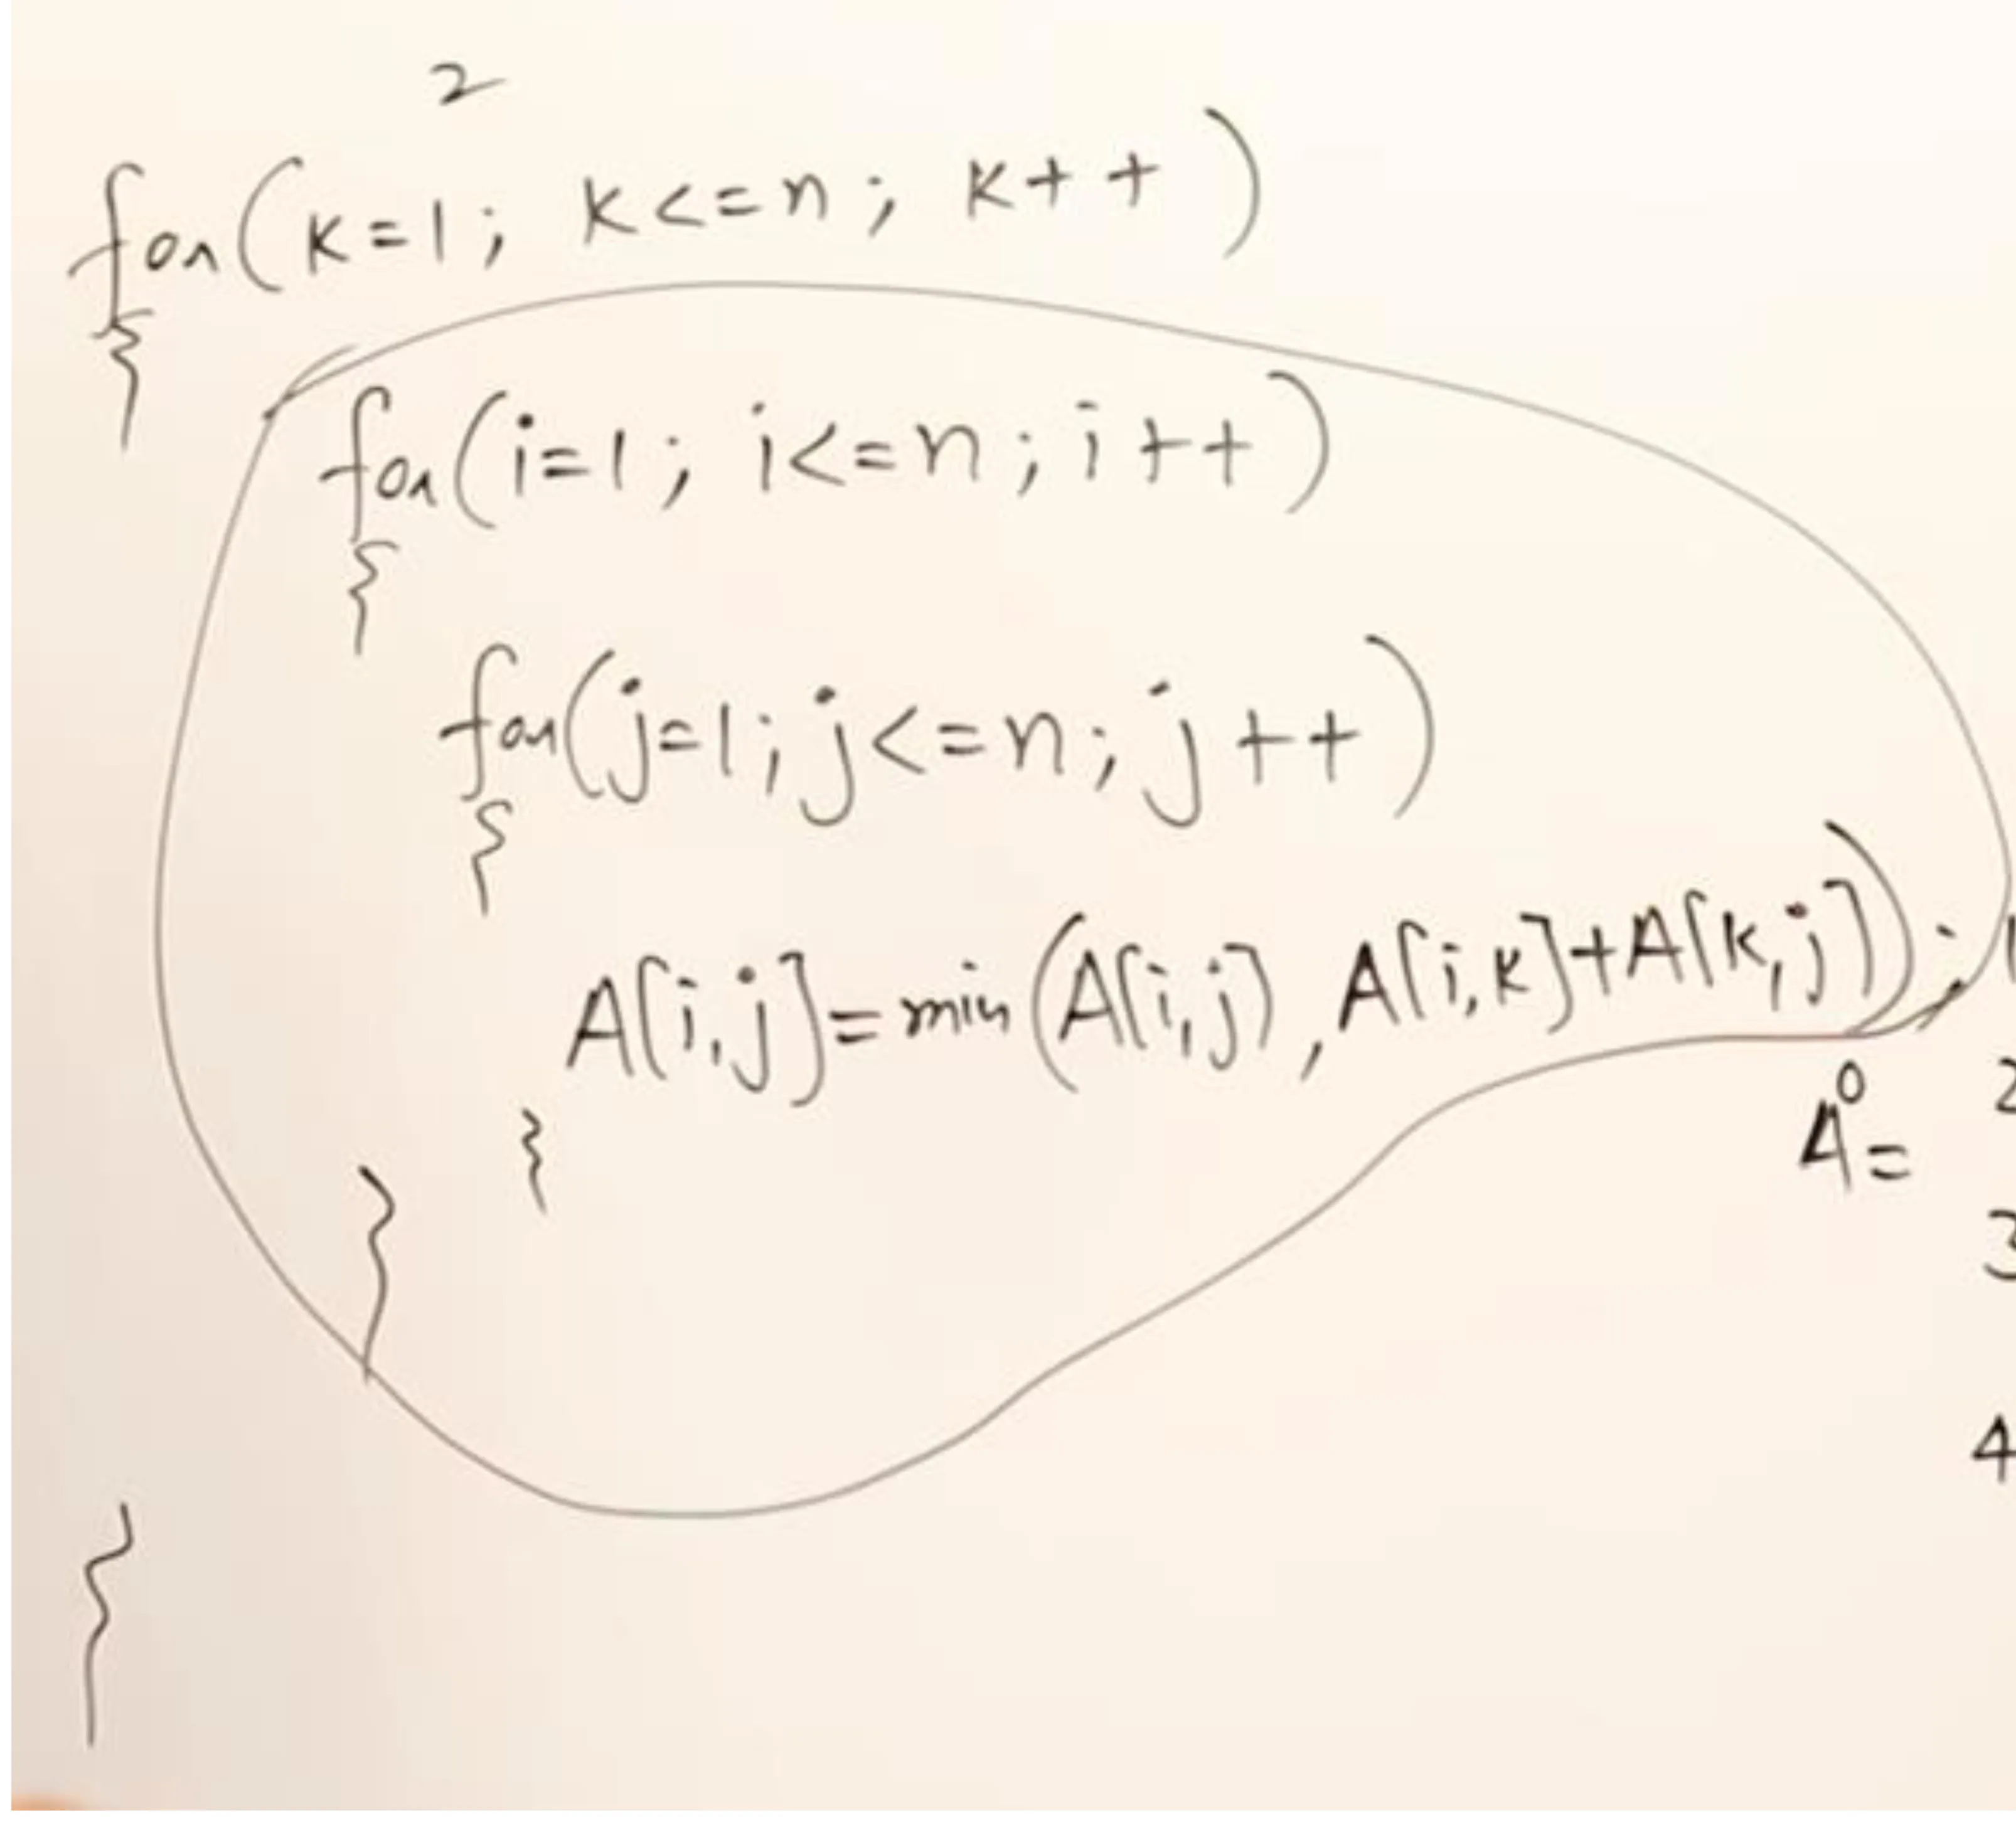 2
for(k=1; k<=n; k++)
{
for(i=1; i<=n; i++)
{
for(j=1; j<=n; j++)
{
A[i,j]=min(A[i,j], A[i,k]+A[k,j]);
}
}
}
A⁰=
2
3
4